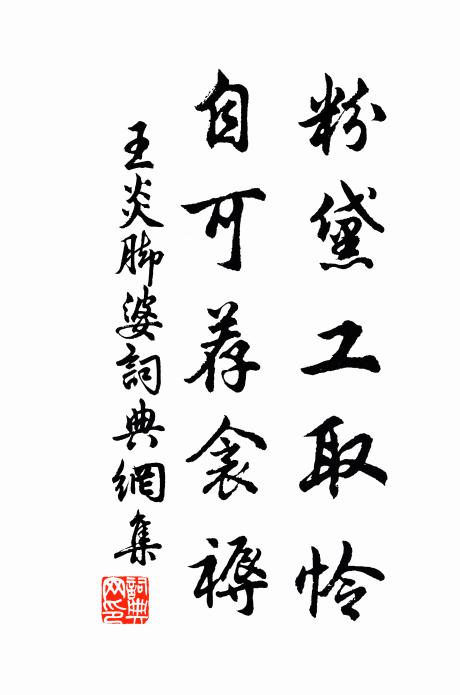 粉黛工取怜
自可荐衾褥
王炎脚婆詞典網集
詞典網印